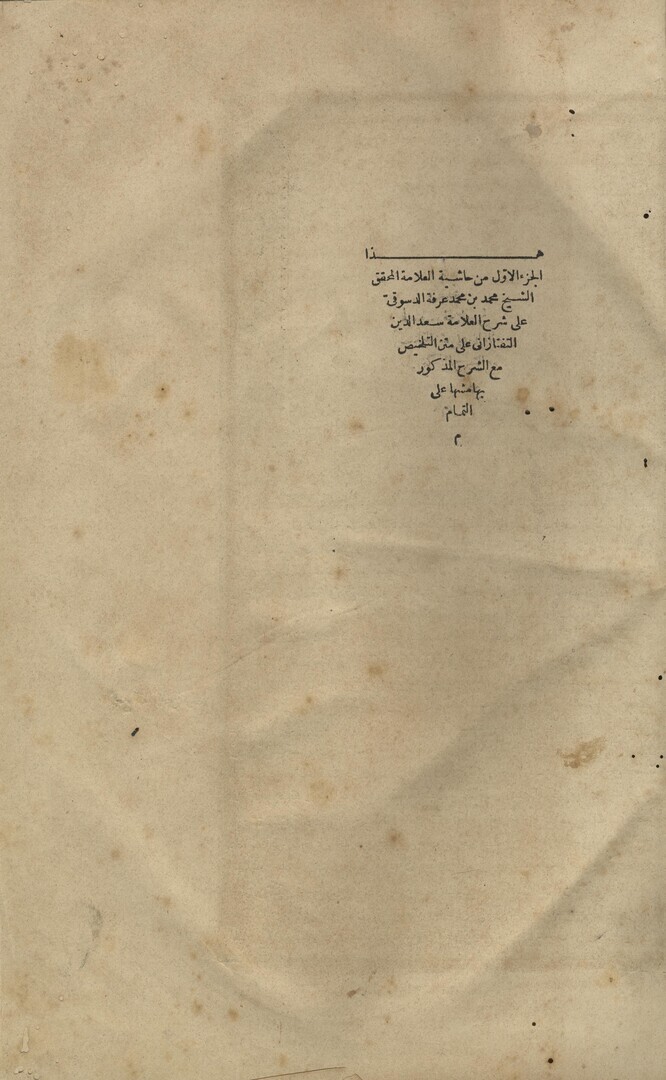 هــــــــــــــــــذا
الجزء الاوّل من حاشية العلامة المحقق
الشيخ محمد بن محمد عرفة الدسوقى
على شرح العلامة سعد الدين
التفتازانى على متن التلخيص
مع الشرح المذكور
بهامشها على
التمام
م